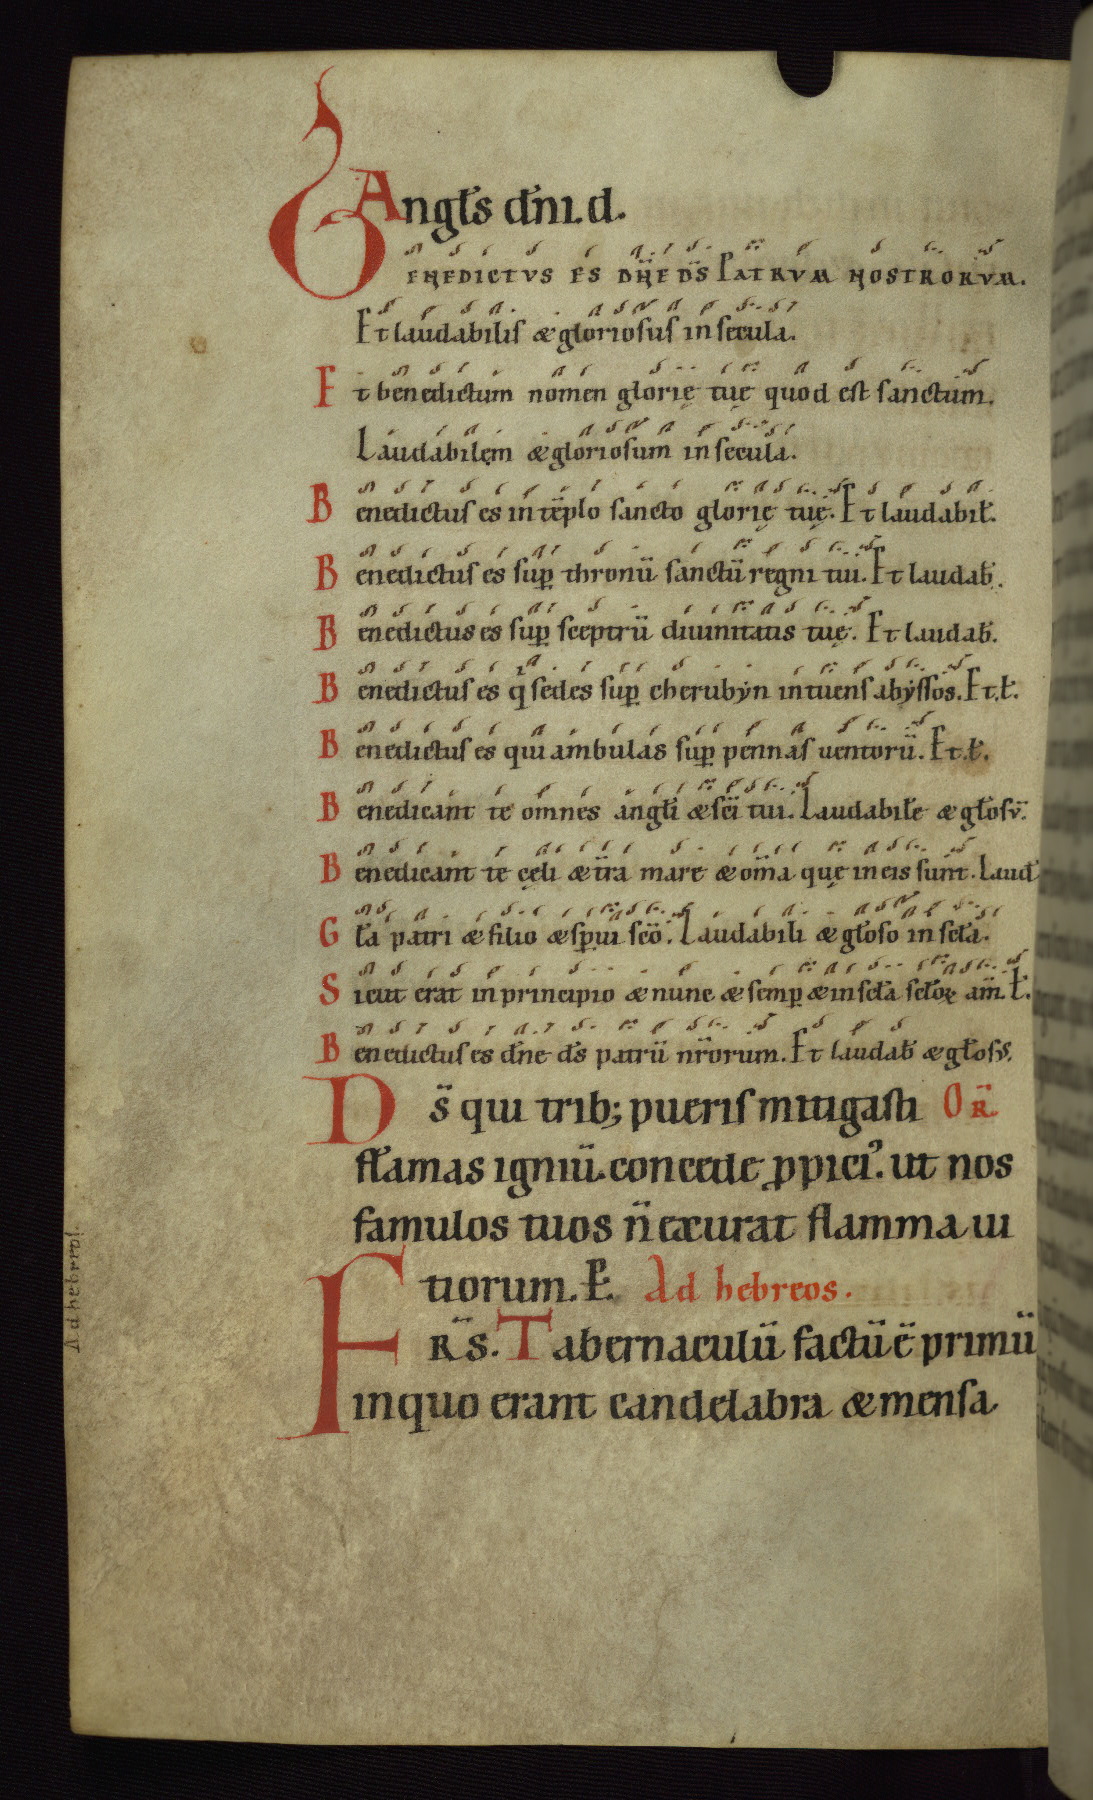 Angłs dn̄i. d.
BENEDICTVS ES DN̄E DS̄ PATRVM NOSTRORVM.
Et laudabilis & gloriosus in secula.
Et benedictum nomen glorię tuę quod est sanctum.
Laudabilem & gloriosum in secula.
Benedictus es in tēplo sancto glorię tuę. Et laudabił.
Benedictus es sup̲ thronū sanctū regni tui. Et laudab̄.
Benedictus es sup̲ sceptrū diuinitatis tuę. Et laudab̄.
Benedictus es q̇ sedes sup̲ cherubyn intuens abyssos. Et. ł.
Benedictus es qui ambulas sup̲ pennas uentorū. Et. ł.
Benedicant te omnes angłi & sc̄i tui. Laudabiłe & głosv̄.
Benedicant te cęli & tr̄a mare & om̄a quę in eis sunt. Laud̄
Gła patri & filio & sp̄ui sc̄o. Laudabili & głoso in scła.
Sicut erat in principio & nunc & semp̲ & in scła scłoꝝ am̄. ł.
Benedictus es dn̄e ds̄ patrū nr̄orum. Et laudab̄ & głoss.
Ds̄ qui trib; pueris mitigasti OR̄
fłamas igniū. concede ꝓpici᾿. ut nos
famulos tuos n̄ exurat flamma ui
tiorum. P̄. Ad hebreos.
FR̄S. Tabernaculū factū ē primū
inquo erant candelabra & mensa
Ad hebreos.